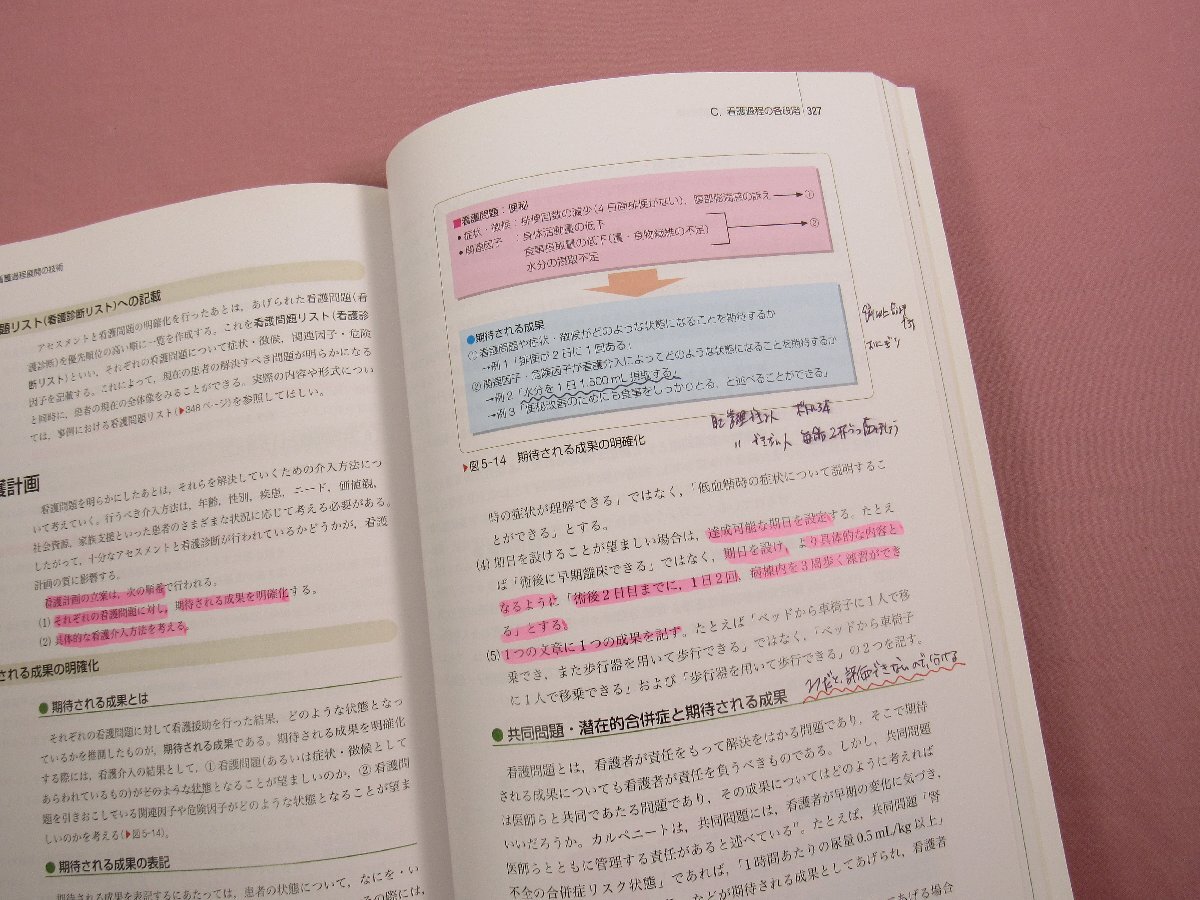 看護過程展開の技術
題リスト(看護診断リスト)への記載
アセスメントと看護問題の明確化を行ったあとは、あげられた看護問題(看
護診断)を優先順位の高い順に一覧を作成する。これを看護問題リスト(看護診
断リスト)といい、それぞれの看護問題について症状・徴候、関連因子・危険
因子を記載する。これによって、現在の患者の解決すべき問題が明らかになる
と同時に、患者の現在の全体像をみることができる。実際の内容や形式につい
ては、事例における看護問題リスト(▶348ページ)を参照してほしい。
護計画
看護問題を明らかにしたあとは、それらを解決していくための介入方法につ
いて考えていく。行うべき介入方法は、年齢、性別、疾患、ニード、価値観、
社会資源、家族支援といった患者のさまざまな状況に応じて考える必要がある。
したがって、十分なアセスメントと看護診断が行われているかどうかが、看護
計画の質に影響する。
看護計画の立案は、次の順番で行われる。
(1) それぞれの看護問題に対し、期待される成果を明確化する。
(2) 具体的な看護介入方法を考える。
される成果の明確化
● 期待される成果とは
それぞれの看護問題に対して看護援助を行った結果、どのような状態となっ
ているかを推測したものが、期待される成果である。期待される成果を明確化
する際には、看護介入の結果として、①看護問題(あるいは症状・徴候として
あらわれているもの)がどのような状態となることが望ましいのか、②看護問
題を引きおこしている関連因子や危険因子がどのような状態となることが望ま
しいのかを考える(▶図5-14)。
● 期待される成果の表記
期待される成果を表記するにあたっては、患者の状態について、なにを・い
C. 看護過程の各段階 327
■看護問題:便秘
●症状・徴候:排便回数の減少(4日間排便がない)、腹部膨満感の訴え→①
●関連因子:身体活動量の低下
食事摂取量の低下(量・食物繊維の不足) →②
水分の摂取不足
●期待される成果
①看護問題や症状・徴候がどのような状態になることを期待するか
→例1「排便が2日に1回ある」
②関連因子・危険因子が看護介入によってどのような状態になることを期待するか
→例2「水分を1日1,500mL摂取する」
→例3「便秘改善のためにも食事をしっかりとる、と述べることができる」
▶図5-14 期待される成果の明確化
時の症状が理解できる」ではなく、「低血糖時の症状について説明するこ
とができる」とする。
(4) 期日を設けることが望ましい場合は、達成可能な期日を設定する。たとえ
ば「術後に早期離床できる」ではなく、期日を設け、より具体的な内容と
なるように「術後2日目までに、1日2回、病棟内を3周歩く練習ができ
る」とする。
(5) 1つの文章に1つの成果を記す。たとえば「ベッドから車椅子に1人で移
乗でき、また歩行器を用いて歩行できる」ではなく、「ベッドから車椅子
に1人で移乗できる」および「歩行器を用いて歩行できる」の2つを記す。
2つだと、評価できないので、分ける
● 共同問題・潜在的合併症と期待される成果
看護問題とは、看護者が責任をもって解決をはかる問題であり、そこで期待
される成果についても看護者が責任を負うべきものである。しかし、共同問題
は医師らと共同であたる問題であり、その成果についてはどのように考えれば
いいだろうか。カルペニートは、共同問題には、看護者が早期の変化に気づき、
医師らとともに管理する責任があると述べている。たとえば、共同問題「腎
不全の合併症リスク状態」であれば、「1時間あたりの尿量0.5mL/kg以上」
などが期待される成果としてあげられ、看護者
てあげる場合